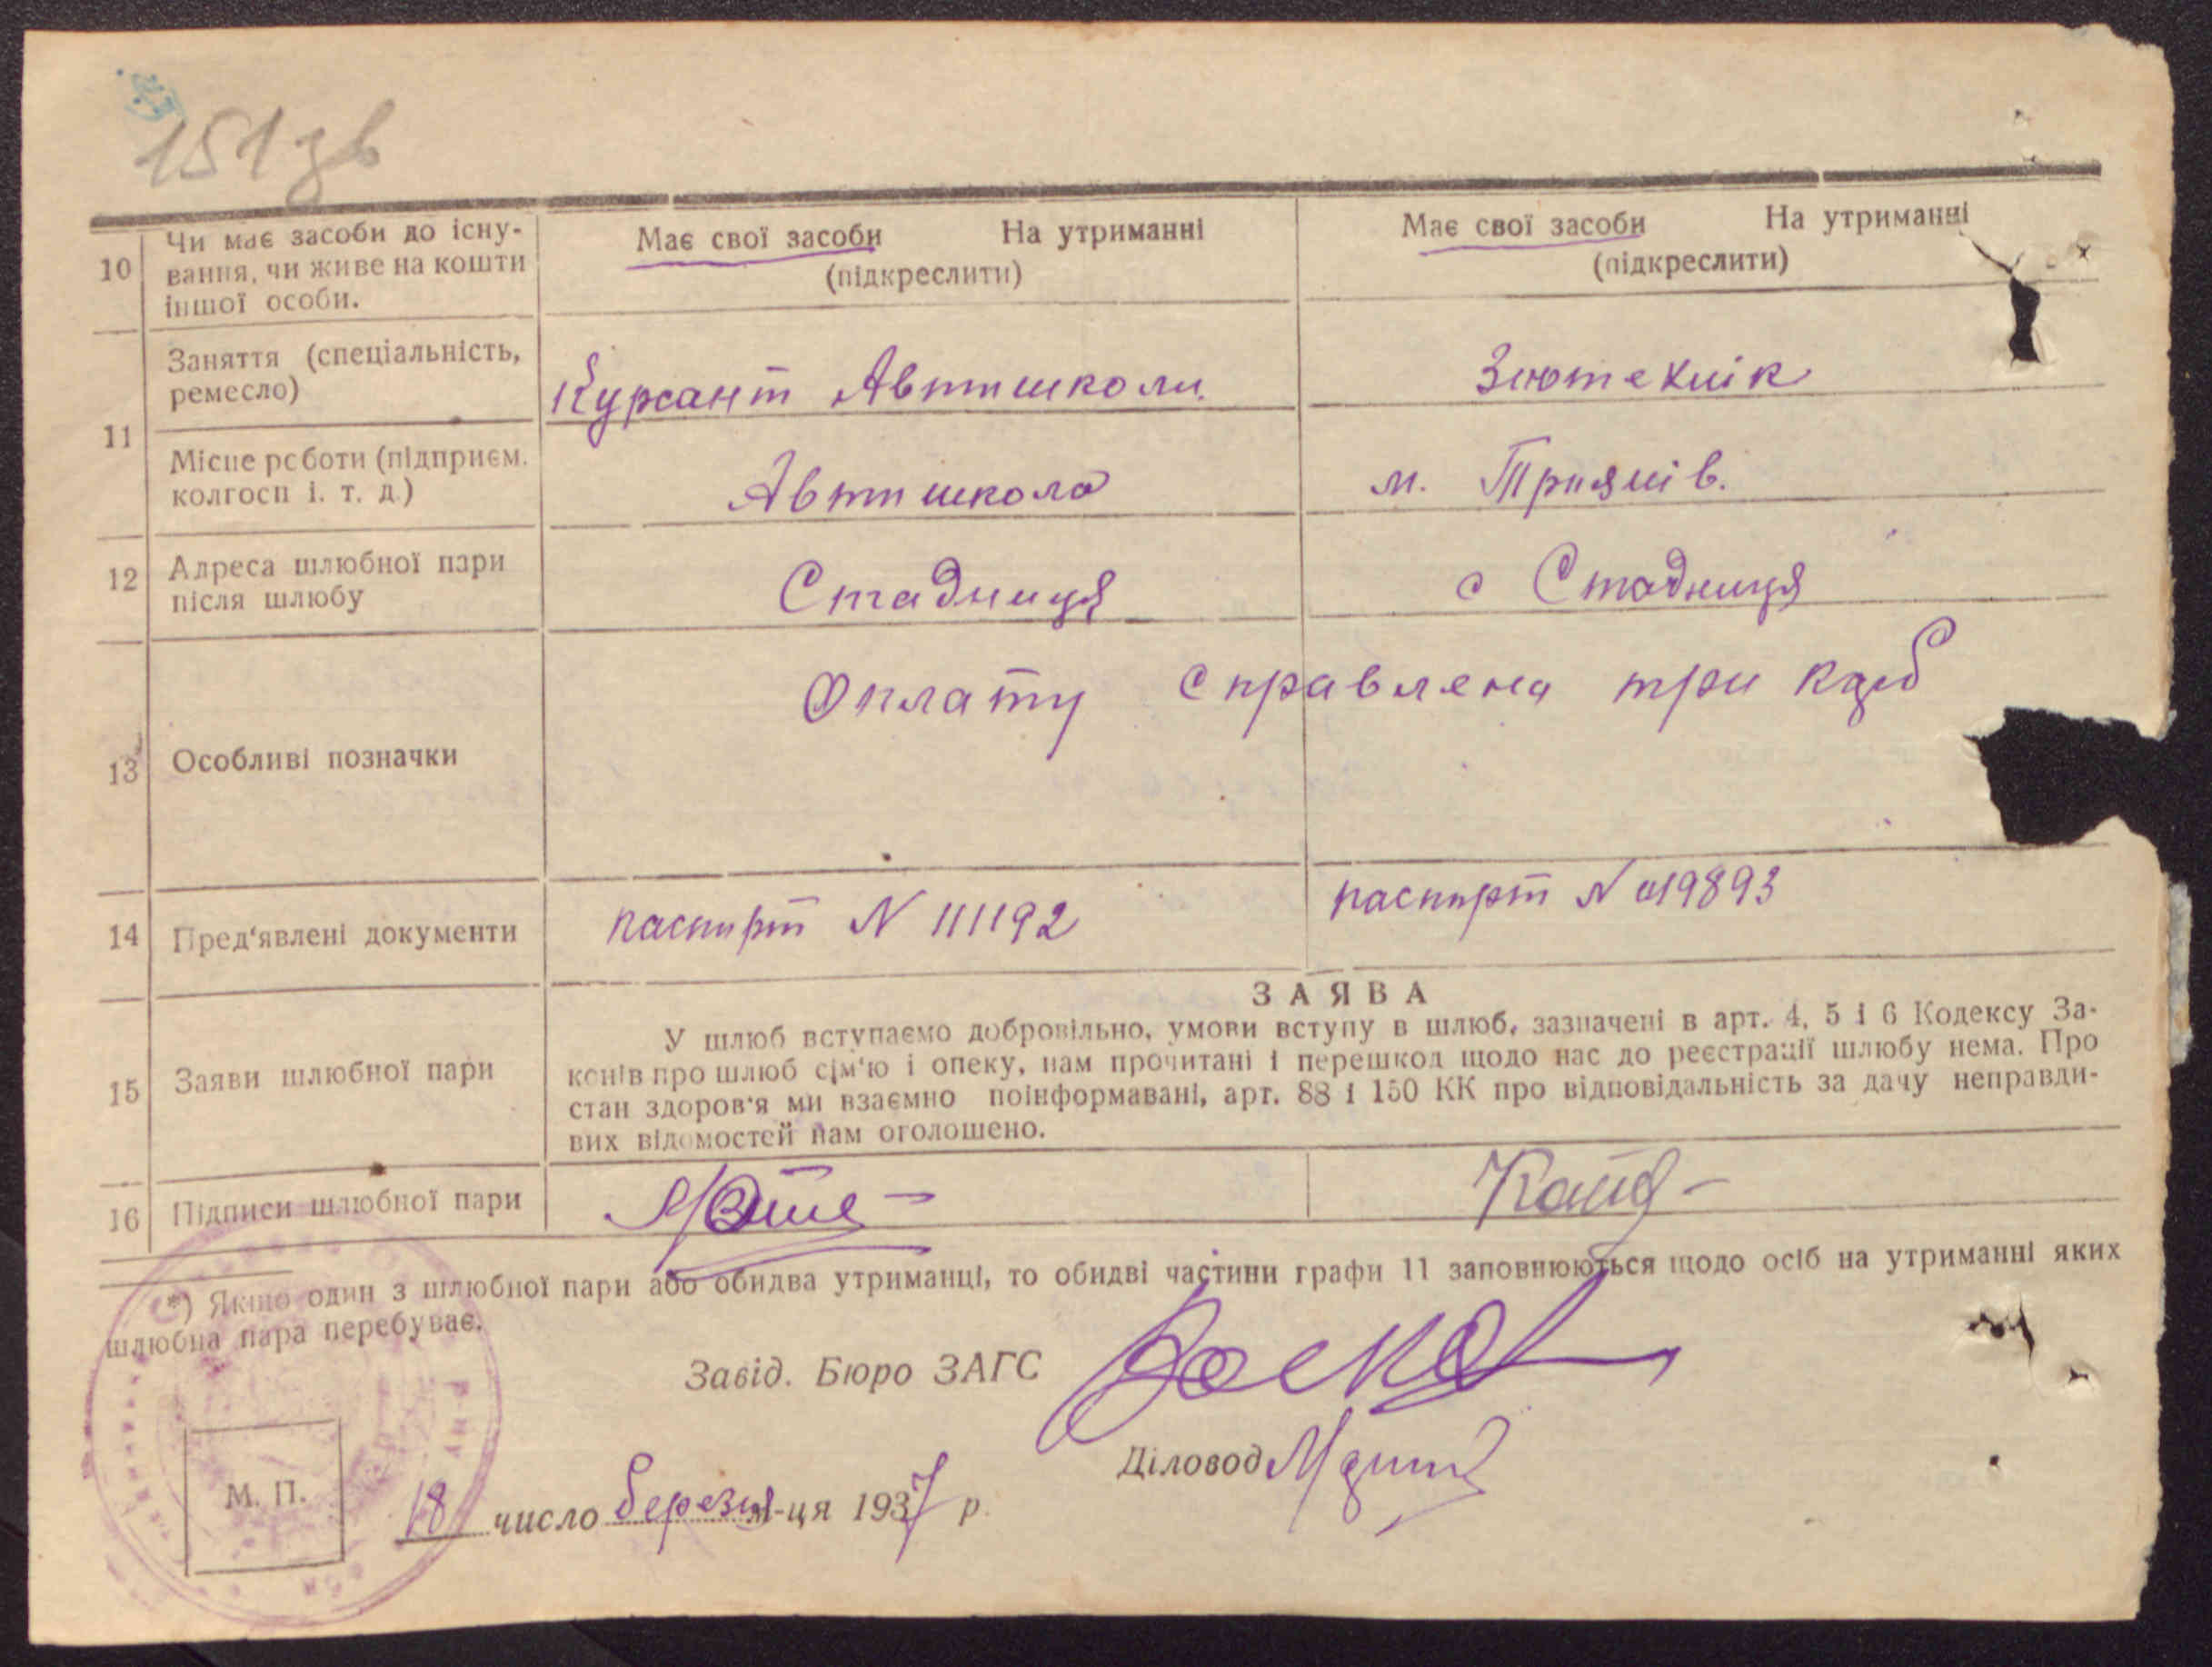 151 зв
10 Чи має засоби до існу-
вання, чи живе на кошти
іншої особи.
Має свої засоби На утриманні
(підкреслити)
Має свої засоби На утриманні
(підкреслити)
11 Заняття (спеціальність,
ремесло)
Курсант Автошколи.
Зоотехнік
Місце роботи (підприєм.
колгосп і. т. д.)
Автошкола
м.
12 Адреса шлюбної пари
після шлюбу
Стадниця
с Стадниця
13 Особливі позначки
Оплату справлена три карб
14 Пред'явлені документи
паспорт N 111192
паспорт N 019893
15 Заяви шлюбної пари
ЗАЯВА
У шлюб вступаємо добровільно, умови вступу в шлюб, зазначені в арт. 4, 5 і 6 Кодексу За-
конів про шлюб сім'ю і опеку, нам прочитані і перешкод щодо нас до реєстрації шлюбу нема. Про
стан здоров'я ми взаємно поінформавані, арт. 88 і 150 КК про відповідальність за дачу неправди-
вих відомостей нам оголошено.
16 Підписи шлюбної пари
*) Якщо один з шлюбної пари або обидва утриманці, то обидві частини графи 11 заповнюються щодо осіб на утриманні яких
шлюбна пара перебуває.
Завід. Бюро ЗАГС
Діловод
М. П.
18 число березня м-ця 1937 р.